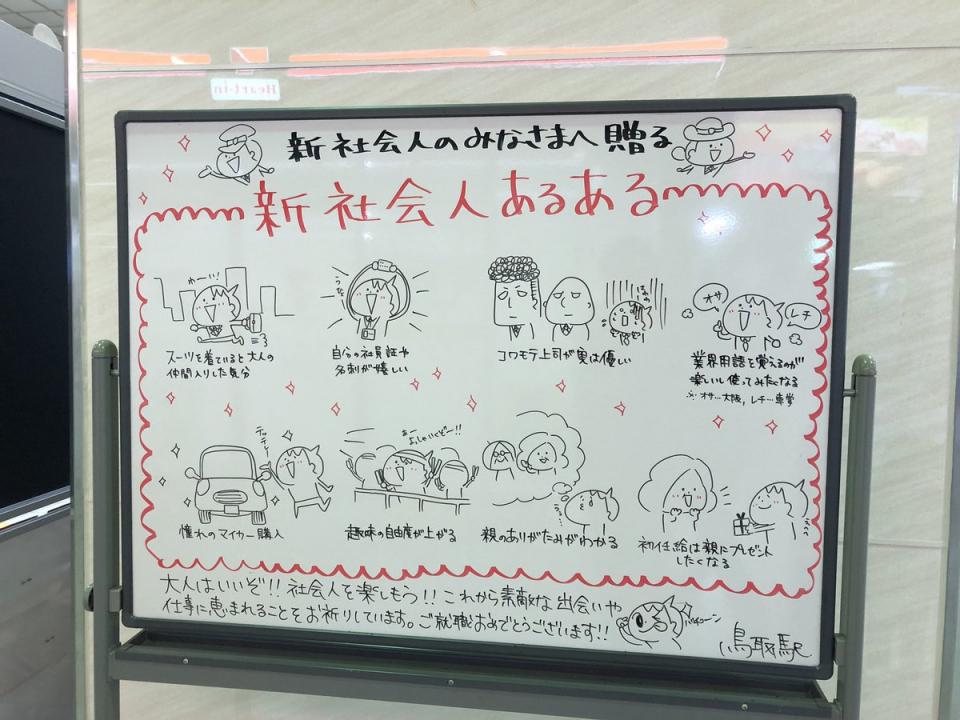 Heart-in
新社会人のみなさまへ贈る
新社会人あるある
わーい!
スーツを着ていると大人の
仲間入りした気分
自分の社員証や
名刺が嬉しい
コワモテ上司が実は優しい
オサ
レチ
業界用語を覚えるのが
楽しいし使ってみたくなる
※オサ…大阪, レチ…車掌
憧れのマイカー購入
趣味の自由度が上がる
親のありがたみがわかる
初任給は親にプレゼント
したくなる
大人はいいぞ!! 社会人を楽しもう!! これから素敵な出会いや
仕事に恵まれることをお祈りしています。ご就職おめでとうございます!!
鳥取駅